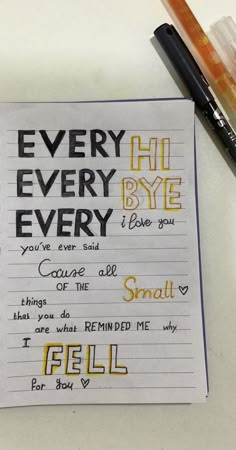 EVERY HI
EVERY BYE
EVERY i love you
you've ever said
Cause all
OF THE Small ♡
things
that you do
are what REMINDED ME why
I
FELL
For you ♡